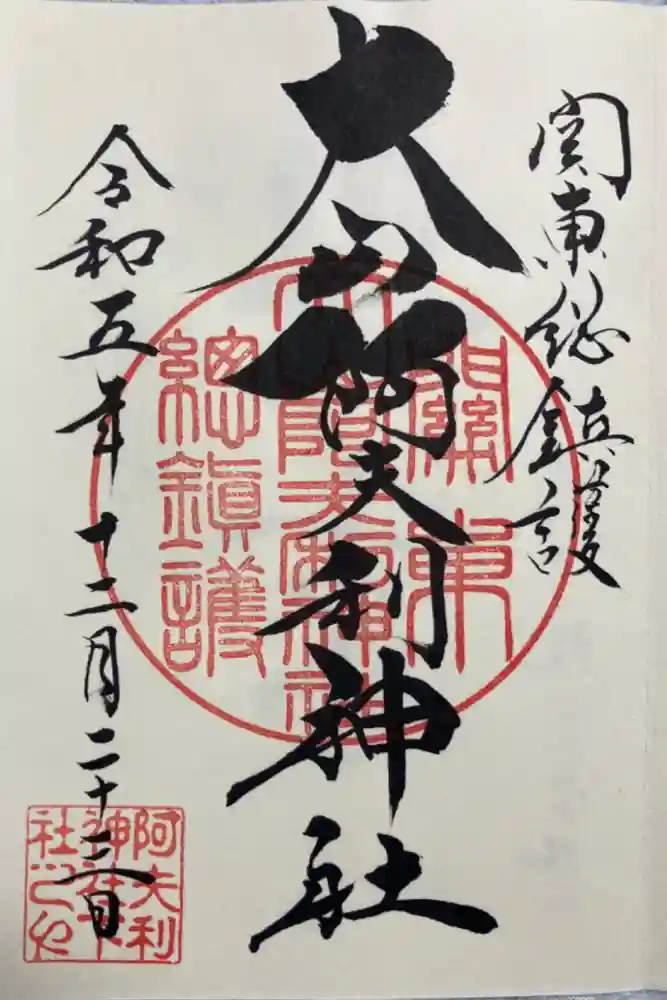 関東総鎮護
大山阿夫利神社
令和五年十二月二十三日
關東
大山阿夫利神社
總鎮護
阿夫利
神社
社